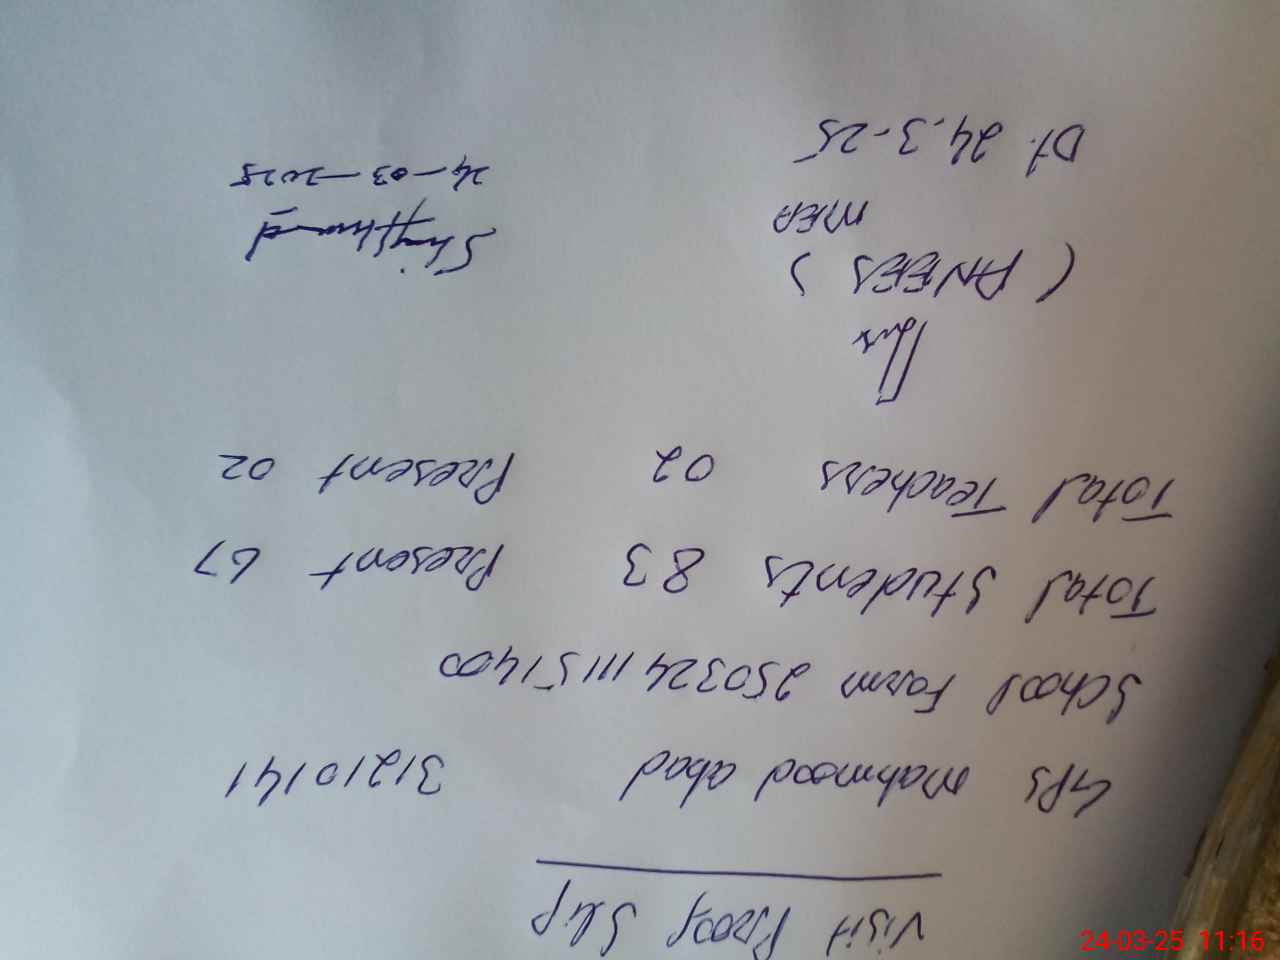 Visit Proof Slip
GPS mahmood abad 31210141
School Form 25032411151400
Total Students 83 Present 67
Total Teachers 02 Present 02
(ANEES)
MEA
Dt. 24.3-25
24-03-2025
24-03-25 11:16